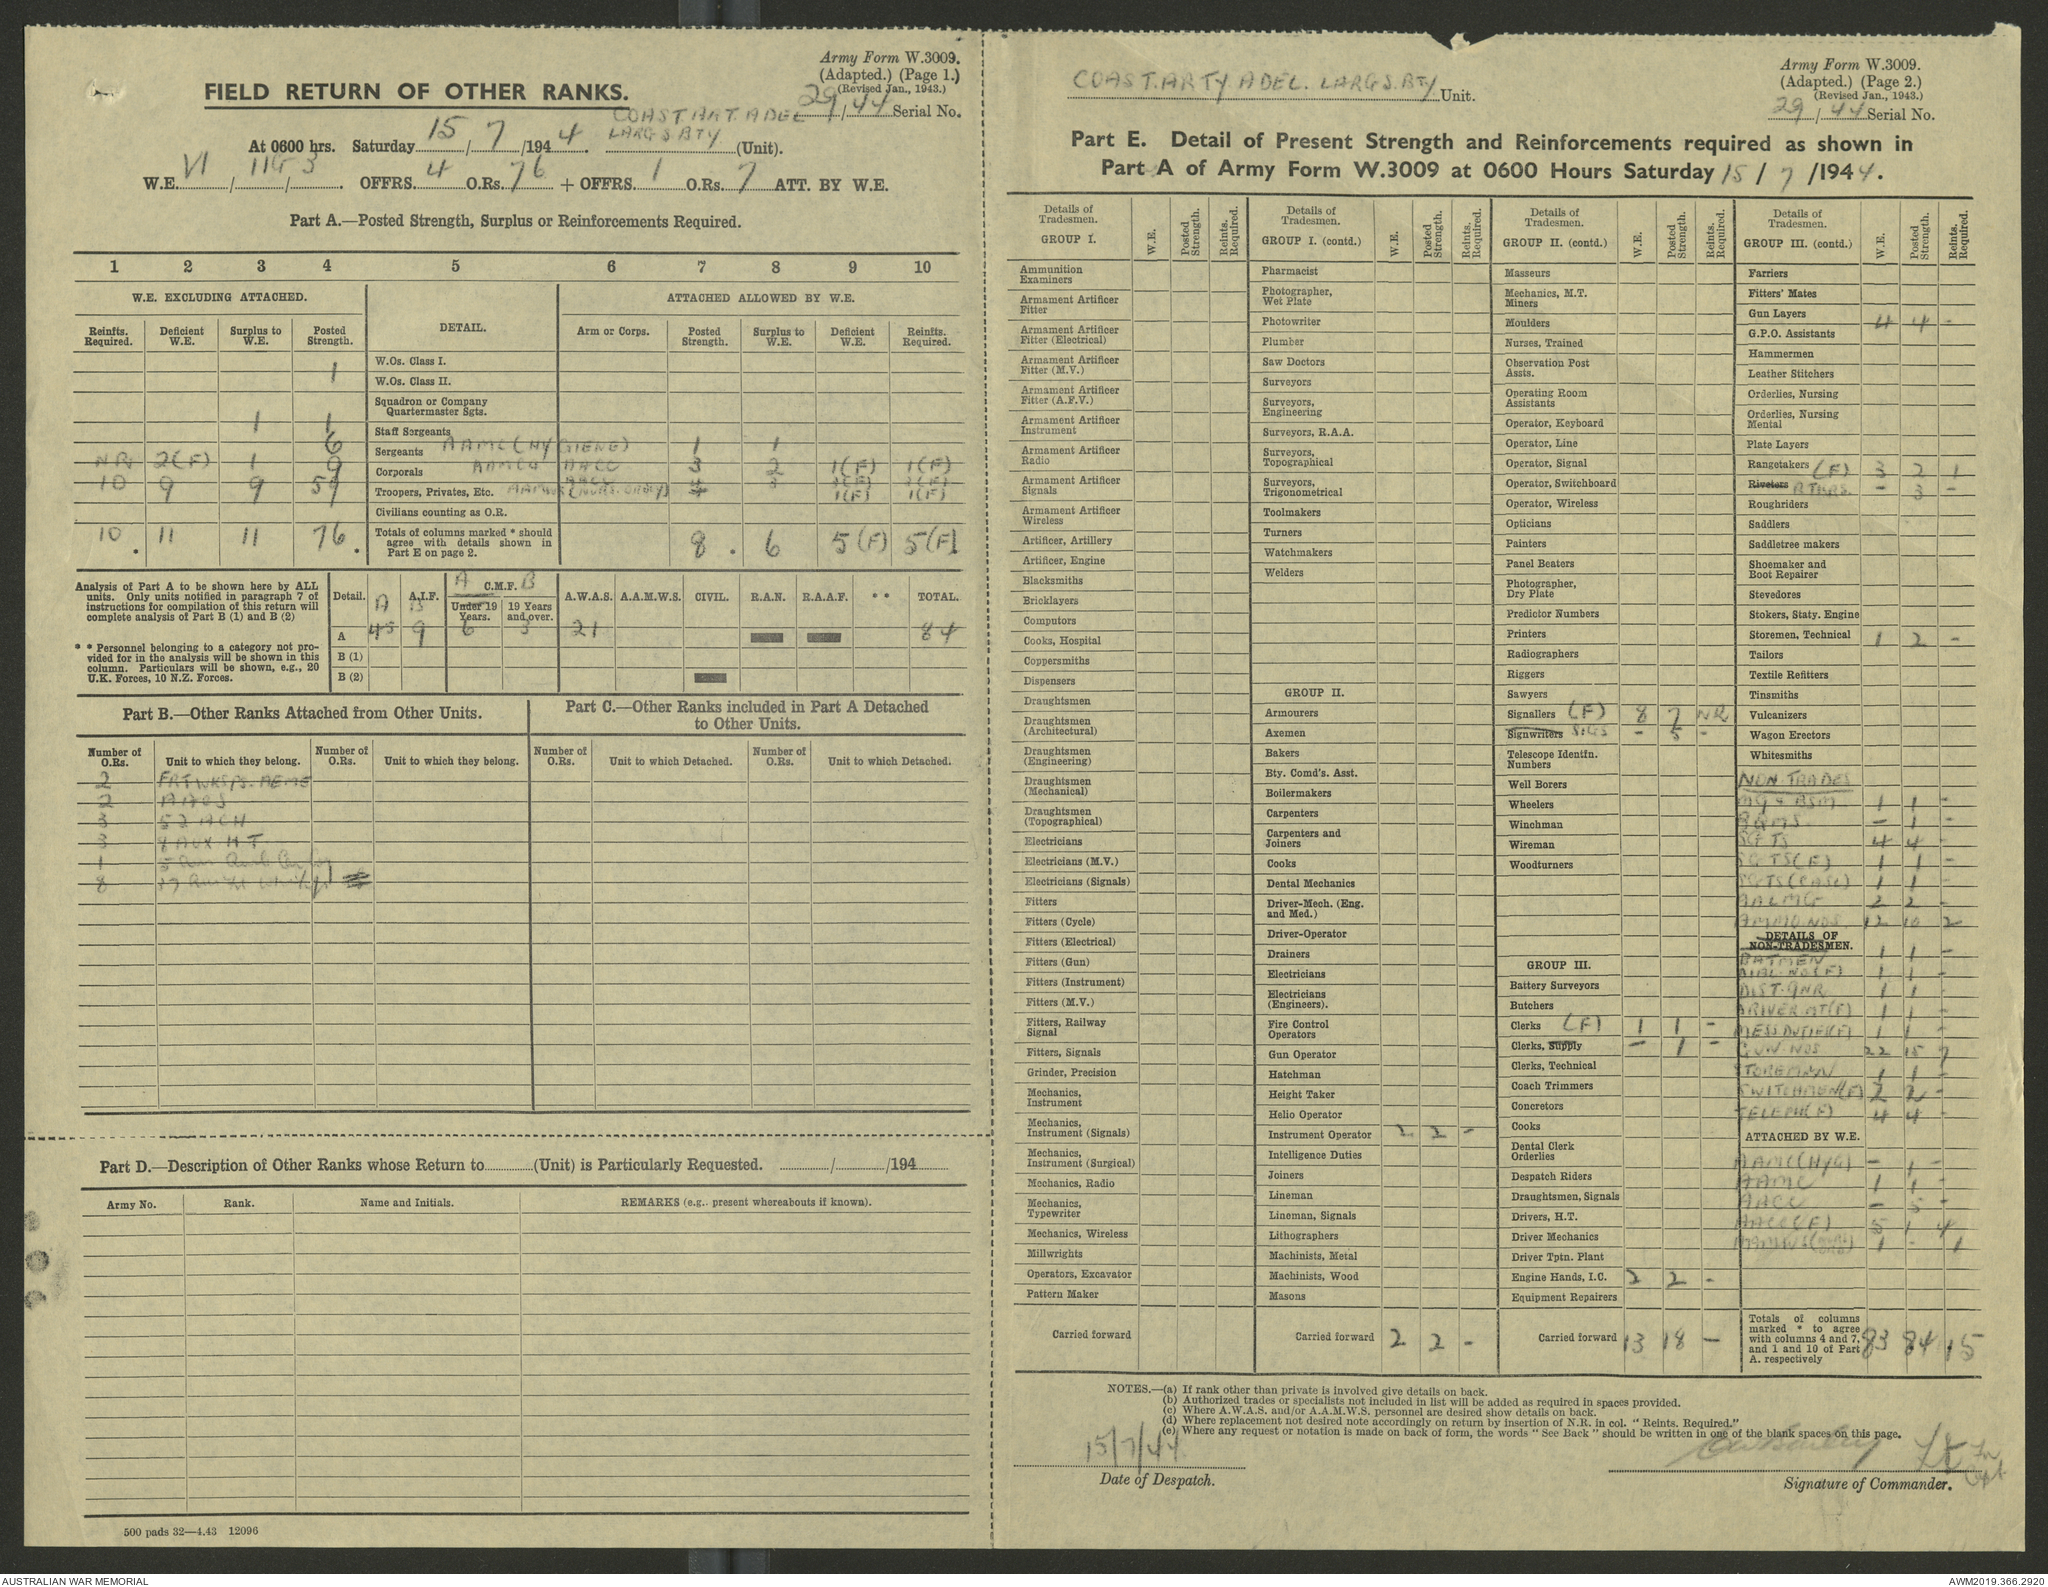 Army Form W.3009.
(Adapted.) (Page 1.)
(Revised Jan., 1943.)
29/44 Serial No.
FIELD RETURN OF OTHER RANKS.
COAST ART. ADEL
LARGS BTY
At 0600 hrs. Saturday 15/7/1944. (Unit).
W.E. VI / 11G / 3. OFFRS. 4 O.Rs. 76 + OFFRS. 1 O.Rs. 7 ATT. BY W.E.
Part A.—Posted Strength, Surplus or Reinforcements Required.
1 2 3 4 5 6 7 8 9 10
W.E. EXCLUDING ATTACHED. DETAIL. ATTACHED ALLOWED BY W.E.
Reinfts. Required. Deficient W.E. Surplus to W.E. Posted Strength. Arm or Corps. Posted Strength. Surplus to W.E. Deficient W.E. Reinfts. Required.
W.Os. Class I.
1 W.Os. Class II.
Squadron or Company Quartermaster Sgts.
1 1 Staff Sergeants
6 Sergeants AAMC (HYGIENE) 1 1
NR 2(F) 1 9 Corporals AACC 3 2 1(F) 1(F)
10 9 9 59 Troopers, Privates, Etc. 1(F) 1(F)
Civilians counting as O.R.
10 11 11 76 Totals of columns marked * should agree with details shown in Part E on page 2. 8 6 5(F) 5(F)
Analysis of Part A to be shown here by ALL units. Only units notified in paragraph 7 of instructions for compilation of this return will complete analysis of Part B (1) and B (2)
* * Personnel belonging to a category not provided for in the analysis will be shown in this column. Particulars will be shown, e.g., 20 U.K. Forces, 10 N.Z. Forces.
Detail. A A.I.F. B A C.M.F. B Under 19 Years. 19 Years and over. A.W.A.S. A.A.M.W.S. CIVIL. R.A.N. R.A.A.F. * * TOTAL.
A 45 9 6 3 21 84
B (1)
B (2)
Part B.—Other Ranks Attached from Other Units.
Number of O.Rs. Unit to which they belong. Number of O.Rs. Unit to which they belong.
2 FRT WKSPS. AEME
2 AAOS
3 52 ACH
3 8 AUX H T
1 5
8
Part C.—Other Ranks included in Part A Detached to Other Units.
Number of O.Rs. Unit to which Detached. Number of O.Rs. Unit to which Detached.
Part D.—Description of Other Ranks whose Return to (Unit) is Particularly Requested. / /194
Army No. Rank. Name and Initials. REMARKS (e.g., present whereabouts if known).
500 pads 32—4.43 12096
COAST. ARTY ADEL. LARGS. BTY Unit.
Army Form W.3009.
(Adapted.) (Page 2.)
(Revised Jan., 1943.)
29/44 Serial No.
Part E. Detail of Present Strength and Reinforcements required as shown in
Part A of Army Form W.3009 at 0600 Hours Saturday 15 / 7 /1944.
Details of Tradesmen. W.E. Posted Strength. Reints. Required.
GROUP I.
Ammunition Examiners
Armament Artificer Fitter
Armament Artificer Fitter (Electrical)
Armament Artificer Fitter (M.V.)
Armament Artificer Fitter (A.F.V.)
Armament Artificer Instrument
Armament Artificer Radio
Armament Artificer Signals
Armament Artificer Wireless
Artificer, Artillery
Artificer, Engine
Blacksmiths
Bricklayers
Computors
Cooks, Hospital
Coppersmiths
Dispensers
Draughtsmen
Draughtsmen (Architectural)
Draughtsmen (Engineering)
Draughtsmen (Mechanical)
Draughtsmen (Topographical)
Electricians
Electricians (M.V.)
Electricians (Signals)
Fitters
Fitters (Cycle)
Fitters (Electrical)
Fitters (Gun)
Fitters (Instrument)
Fitters (M.V.)
Fitters, Railway Signal
Fitters, Signals
Grinder, Precision
Mechanics, Instrument
Mechanics, Instrument (Signals)
Mechanics, Instrument (Surgical)
Mechanics, Radio
Mechanics, Typewriter
Mechanics, Wireless
Millwrights
Operators, Excavator
Pattern Maker
Carried forward
Details of Tradesmen. W.E. Posted Strength. Reints. Required.
GROUP I. (contd.)
Pharmacist
Photographer, Wet Plate
Photowriter
Plumber
Saw Doctors
Surveyors
Surveyors, Engineering
Surveyors, R.A.A.
Surveyors, Topographical
Surveyors, Trigonometrical
Toolmakers
Turners
Watchmakers
Welders
GROUP II.
Armourers
Axemen
Bakers
Bty. Comd's. Asst.
Boilermakers
Carpenters
Carpenters and Joiners
Cooks
Dental Mechanics
Driver-Mech. (Eng. and Med.)
Driver-Operator
Drainers
Electricians
Electricians (Engineers).
Fire Control Operators
Gun Operator
Hatchman
Height Taker
Helio Operator
Instrument Operator 2 2 -
Intelligence Duties
Joiners
Lineman
Lineman, Signals
Lithographers
Machinists, Metal
Machinists, Wood
Masons
Carried forward 2 2 -
Details of Tradesmen. W.E. Posted Strength. Reints. Required.
GROUP II. (contd.)
Masseurs
Mechanics, M.T.
Miners
Moulders
Nurses, Trained
Observation Post Assts.
Operating Room Assistants
Operator, Keyboard
Operator, Line
Operator, Signal
Operator, Switchboard
Operator, Wireless
Opticians
Painters
Panel Beaters
Photographer, Dry Plate
Predictor Numbers
Printers
Radiographers
Riggers
Sawyers
Signallers (F) 8 7 NR
Signwriters SIGS - 5 -
Telescope Identfn. Numbers
Well Borers
Wheelers
Winchman
Wireman
Woodturners
GROUP III.
Battery Surveyors
Butchers
Clerks (F) 1 1 -
Clerks, Supply - 1 -
Clerks, Technical
Coach Trimmers
Concretors
Cooks
Dental Clerk Orderlies
Despatch Riders
Draughtsmen, Signals
Drivers, H.T.
Driver Mechanics
Driver Tptn. Plant
Engine Hands, I.C. 2 2 -
Equipment Repairers
Carried forward 13 18 -
Details of Tradesmen. W.E. Posted Strength. Reints. Required.
GROUP III. (contd.)
Farriers
Fitters' Mates
Gun Layers 4 4 -
G.P.O. Assistants
Hammermen
Leather Stitchers
Orderlies, Nursing
Orderlies, Nursing Mental
Plate Layers
Rangetakers (F) 3 2 1
Riveters RTKRS. - 3 -
Roughriders
Saddlers
Saddletree makers
Shoemaker and Boot Repairer
Stevedores
Stokers, Staty. Engine
Storemen, Technical 1 2 -
Tailors
Textile Refitters
Tinsmiths
Vulcanizers
Wagon Erectors
Whitesmiths
NON-TRADES
MG & BSM 1 1 -
BQMS - 1 -
SGTS 4 4 -
SGTS (F) 1 1 -
SGTS (CASC) 1 1 -
AALMG 2 2 -
AMMO NOS 12 10 2
DETAILS OF NON-TRADESMEN.
BATMEN 1 1 -
DIAL NO (F) 1 1 -
DIST. GNR 1 1 -
DRIVER MT (F) 1 1 -
MESS DUTIES (F) 1 1 -
GUN NOS 22 15 7
STOREMAN 1 1 -
SWITCHMEN (F) 2 2 -
TELEPH (F) 4 4 -
ATTACHED BY W.E.
AAMC (HYG) - 1 -
AAMC 1 1 -
AACC - 5 -
AACC (F) 5 1 4
1 - 1
Totals of columns marked * to agree with columns 4 and 7, and 1 and 10 of Part A. respectively 83 84 15
NOTES.—(a) If rank other than private is involved give details on back.
(b) Authorized trades or specialists not included in list will be added as required in spaces provided.
(c) Where A.W.A.S. and/or A.A.M.W.S. personnel are desired show details on back.
(d) Where replacement not desired note accordingly on return by insertion of N.R. in col. "Reints. Required."
(e) Where any request or notation is made on back of form, the words "See Back" should be written in one of the blank spaces on this page.
15/7/44
Date of Despatch.
Lt
Signature of Commander.
AUSTRALIAN WAR MEMORIAL
AWM2019.366.2920